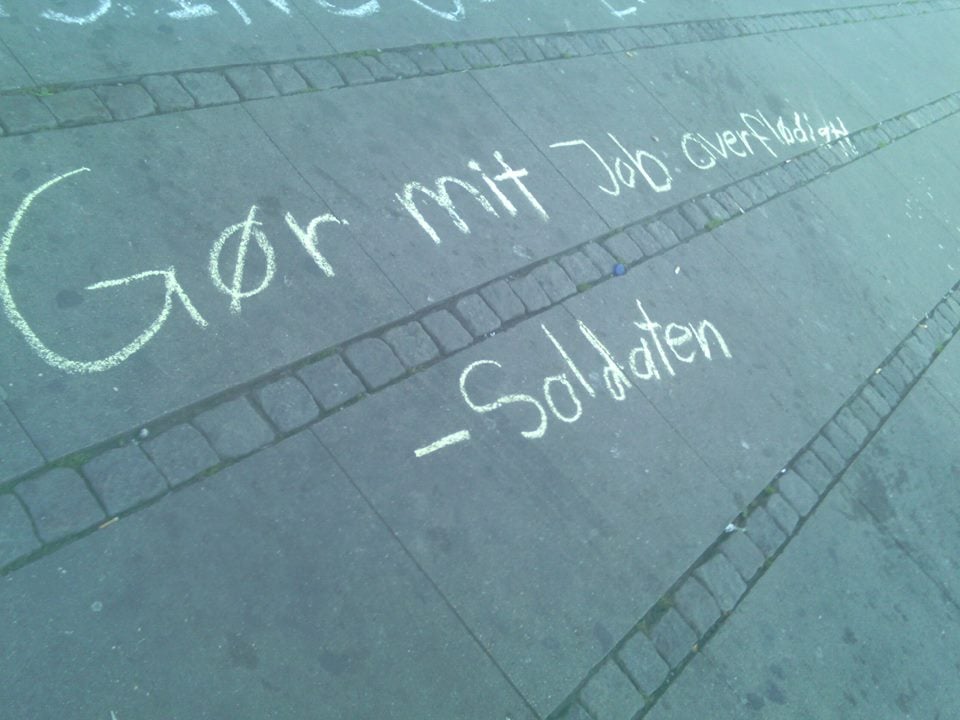 Gør mit Job overflødigt
- Soldaten